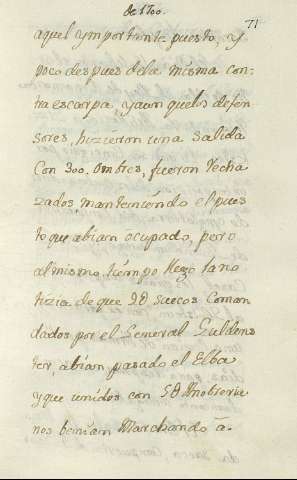 de 1700.
71
aquel ymportante puesto, y
poco despues dela misma con-
traescarpa, y aun quelos defen
sores, hizieron una salida
Con 300. Ombres, fueron recha
zados, manteniendo el pues
to que abian ocupado, pero
al mismo tiempo llegó la no
tizia de que 2D suecos Coman
dados por el General Guldens
ter, abian pasado el Elba
y que unidos con 5D
nos benian Marchando á-